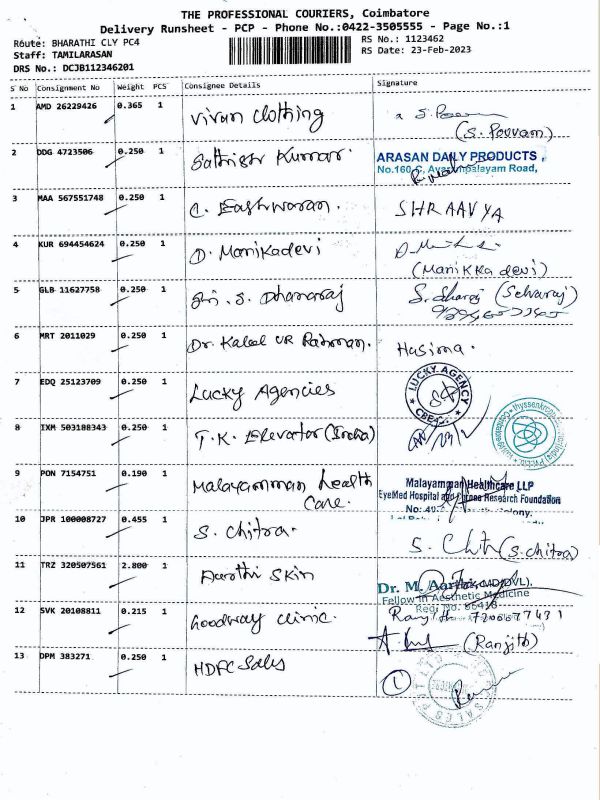 THE PROFESSIONAL COURIERS, Coimbatore
Delivery Runsheet - PCP - Phone No.:0422-3505555 - Page No.:1
Route: BHARATHI CLY PC4
RS No.: 1123462
Staff: TAMILARASAN
RS Date: 23-Feb-2023
DRS No.: DCJB112346201
S No Consignment No Weight PCS Consignee Details Signature
1 AMD 26229426 0.365 1 Vivan Clothing
(S. Poovam)
2 DDG 4723506 0.250 1 Sathish Kumar.
ARASAN DAILY PRODUCTS,
No.160 Road,
3 MAA 567551748 0.250 1 C. Eashwaran. SHRAAVYA
4 KUR 694454624 0.250 1 D. Manikadevi
(Manikka devi)
5 GLB 11627758 0.250 1 Shri. S. Dhanaraj (Selvaraj)
6 MRT 2011029 0.250 1 Dr. Kaleel UR Rahman. Hasima.
7 EDQ 25123709 0.250 1 Lucky Agencies
LUCKY AGENCY
8 IXM 503188343 0.250 1 T.K. Elevator (India)
9 PON 7154751 0.190 1 Malayamman health
Care.
Malayamman Healthcare LLP
EyeMed Hospital and Research Foundation
10 JPR 100008727 0.455 1 S. Chitra.
S. (S. chitra)
11 TRZ 320507561 2.800 1 Aarthi Skin
Dr. M. Aarthi
Fellow in Aesthetic Medicine
Reg. No.
12 SVK 20108811 0.215 1 Goodway clinic. Ranjith
(Ranjith)
13 DPM 383271 0.250 1 HDFC Sales
1